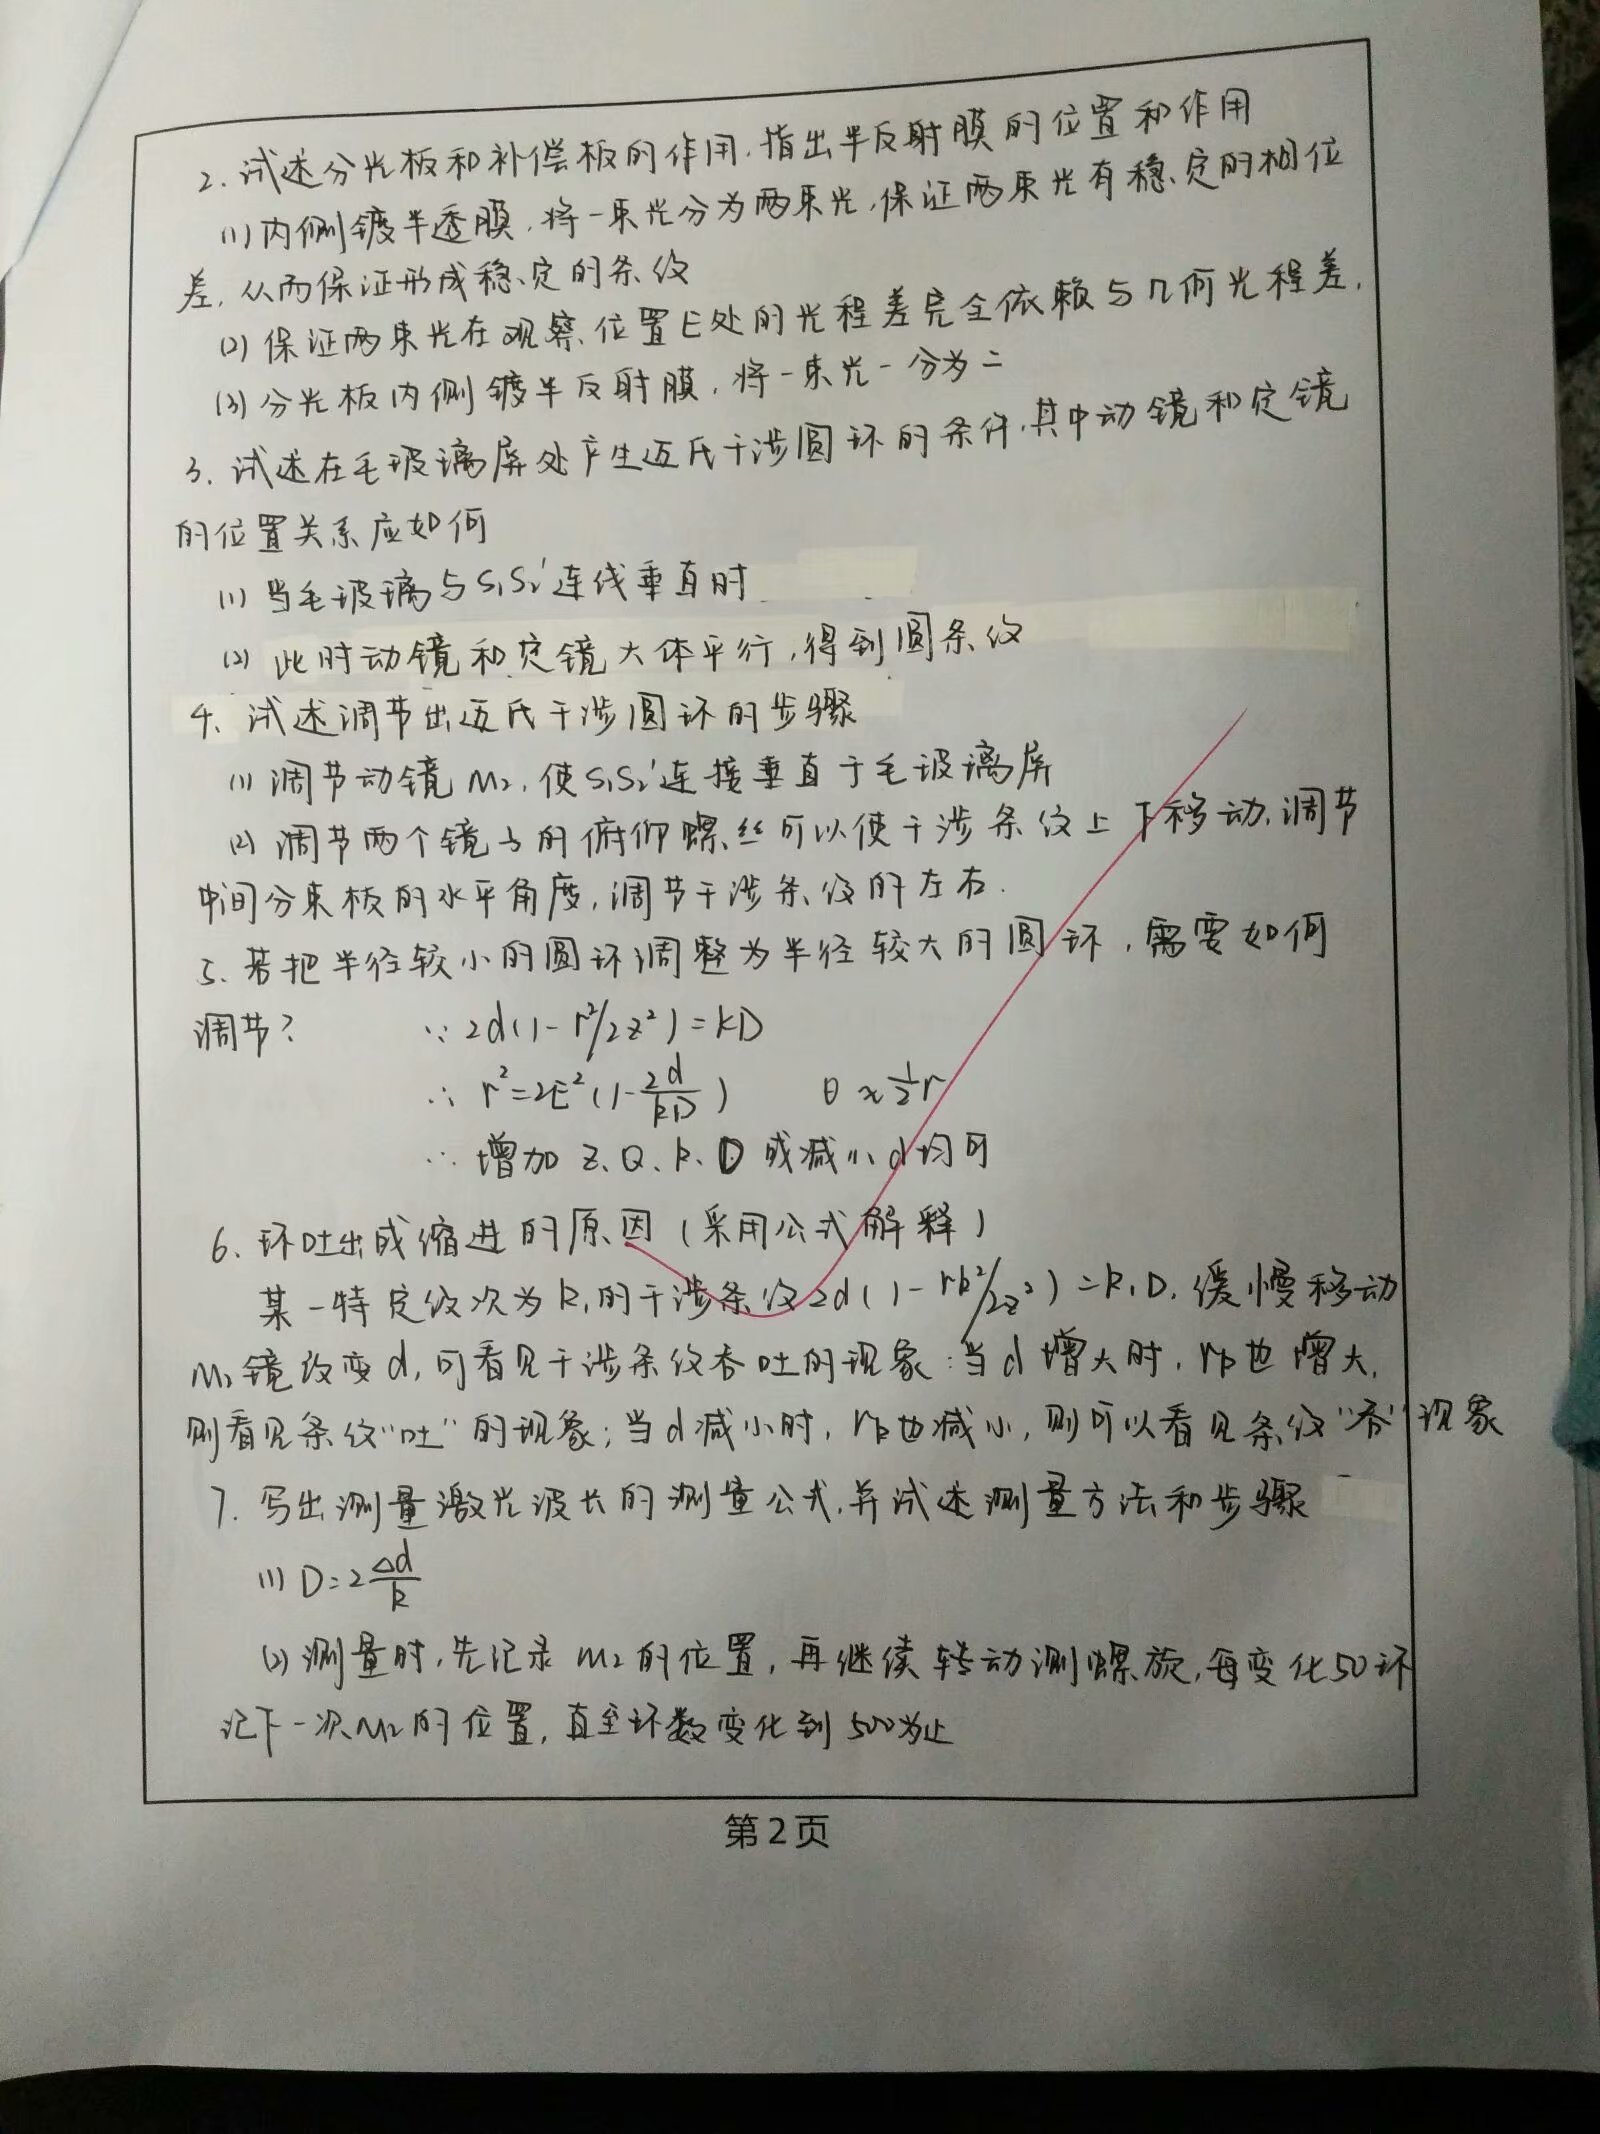 2. 试述分光板和补偿板的作用,指出半反射膜的位置和作用
(1) 内侧镀半透膜,将一束光分为两束光,保证两束光有稳定的相位
差,从而保证形成稳定的条纹
(2) 保证两束光在观察位置E处的光程差完全依赖与几何光程差.
(3) 分光板内侧镀半反射膜,将一束光一分为二
3. 试述在毛玻璃屏处产生迈氏干涉圆环的条件,其中动镜和定镜
的位置关系应如何
(1) 当毛玻璃与S₁S₂'连线垂直时
(2) 此时动镜和定镜大体平行,得到圆条纹
4. 试述调节出迈氏干涉圆环的步骤
(1) 调节动镜M₂,使S₁S₂'连接垂直于毛玻璃屏
(2) 调节两个镜子的俯仰螺丝可以使干涉条纹上下移动,调节
中间分束板的水平角度,调节干涉条纹的左右.
5. 若把半径较小的圆环调整为半径较大的圆环,需要如何
调节? ∵ 2d(1-r²/2z²)=kD
∴ r²=2E²(1-2d/kD) θ≈½r
∴ 增加 z、Q、k、D 或减小d均可
6. 环吐出或缩进的原因(采用公式解释)
某一特定纹次为k₁的干涉条纹2d(1-rk²/2z²)=k₁D.缓慢移动
M₂镜改变d,可看见干涉条纹吞吐的现象:当d增大时,rk也增大,
则看见条纹"吐"的现象;当d减小时,rk也减小,则可以看见条纹"吞"现象
7. 写出测量激光波长的测量公式,并试述测量方法和步骤
(1) D=2Δd/k
(2) 测量时,先记录M₂的位置,再继续转动测螺旋,每变化50环
记下一次M₂的位置,直至环数变化到500为止
第2页